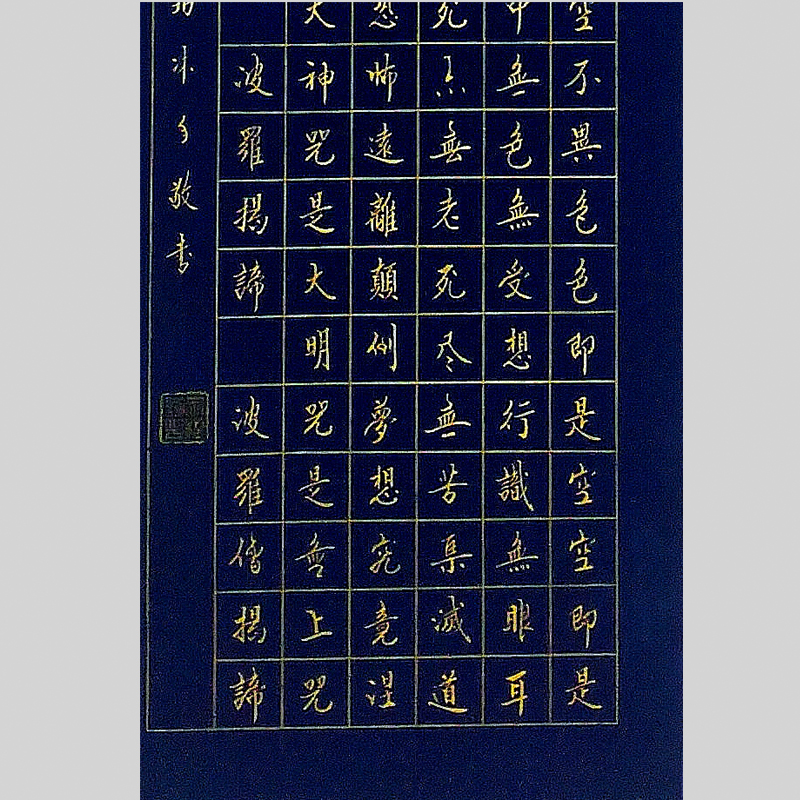 空不異色色即是空空即是
中無色無受想行識無眼耳
死亦無老死尽無苦集滅道
恐怖遠離顛倒夢想究竟涅
大神咒是大明咒是無上咒
波羅揭諦 波羅僧揭諦
沐手敬書